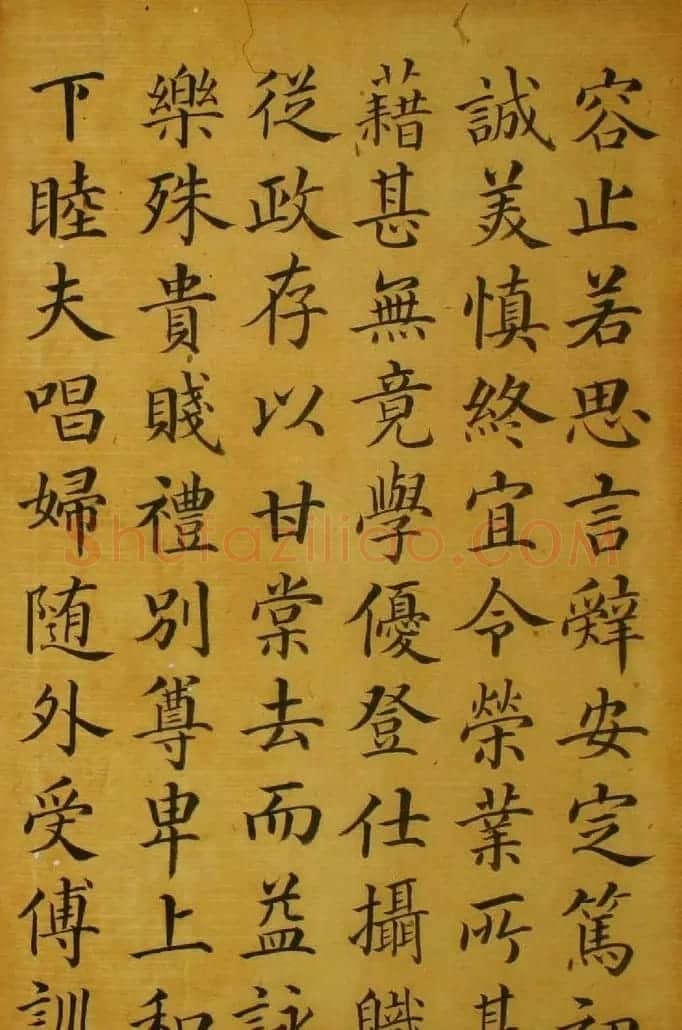 容止若思言辭安定篤初
誠美慎終宜令榮業所基
藉甚無竟學優登仕攝職
從政存以甘棠去而益詠
樂殊貴賤禮別尊卑上和
下睦夫唱婦随外受傅訓
Shufaziliao.COM